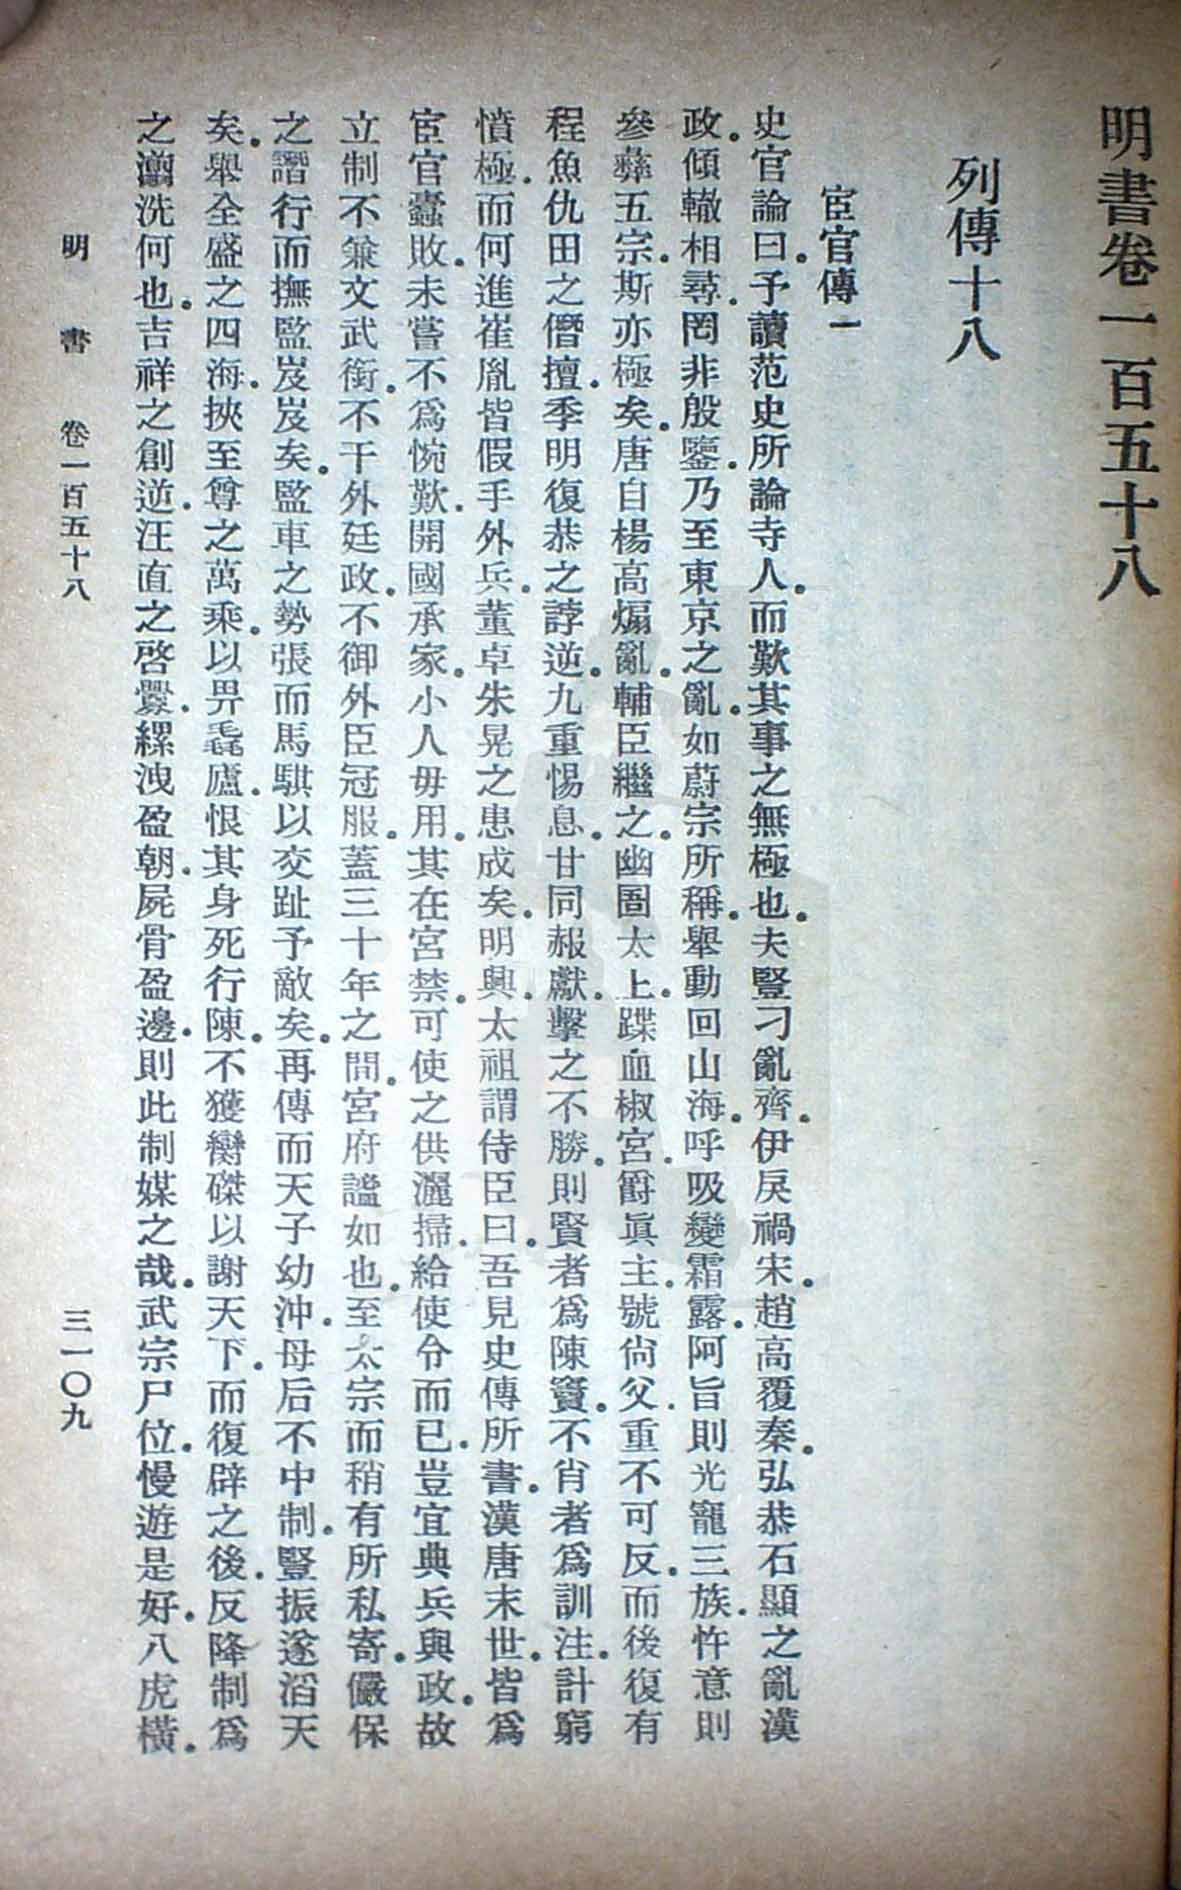 明書卷一百五十八
列傳十八
宦官傳一
史官論曰。予讀范史所論寺人。而歎其事之無極也。夫豎刁亂齊。伊戾禍宋。趙高覆秦。弘恭石顯之亂漢
政。傾轍相尋。罔非殷鑒。乃至東京之亂。如蔚宗所稱。舉動回山海。呼吸變霜露。阿旨則光寵三族。忤意則
參彝五宗。斯亦極矣。唐自楊高煽亂。輔臣繼之。幽圄太上。蹀血椒宮。爵眞主。號尙父。重不可反。而後復有
程魚仇田之僭擅。季明復恭之誖逆。九重惕息。甘同赧獻。擊之不勝。則賢者爲陳竇。不肖者爲訓注。計窮
憤極。而何進崔胤皆假手外兵。董卓朱晃之患成矣。明興。太祖謂侍臣曰。吾見史傳所書。漢唐末世。皆爲
宦官蠹敗。未嘗不爲惋歎。開國承家。小人毋用。其在宮禁。可使之供灑掃。給使令而已。豈宜典兵與政。故
立制不兼文武銜。不干外廷政。不御外臣冠服。蓋三十年之間。宮府謐如也。至太宗而稍有所私寄。儼保
之譖行而撫監岌岌矣。監車之勢張而馬騏以交趾予敵矣。再傳而天子幼沖。母后不中制。豎振遂滔天
矣。舉全盛之四海。挾至尊之萬乘。以畀毳廬。恨其身死行陳。不獲臠磔以謝天下。而復辟之後。反降制爲
之湔洗何也。吉祥之創逆。汪直之啓釁。縲洩盈朝。屍骨盈邊。則此制媒之哉。武宗尸位。慢遊是好。八虎橫。
明 書 卷一百五十八 三一〇九